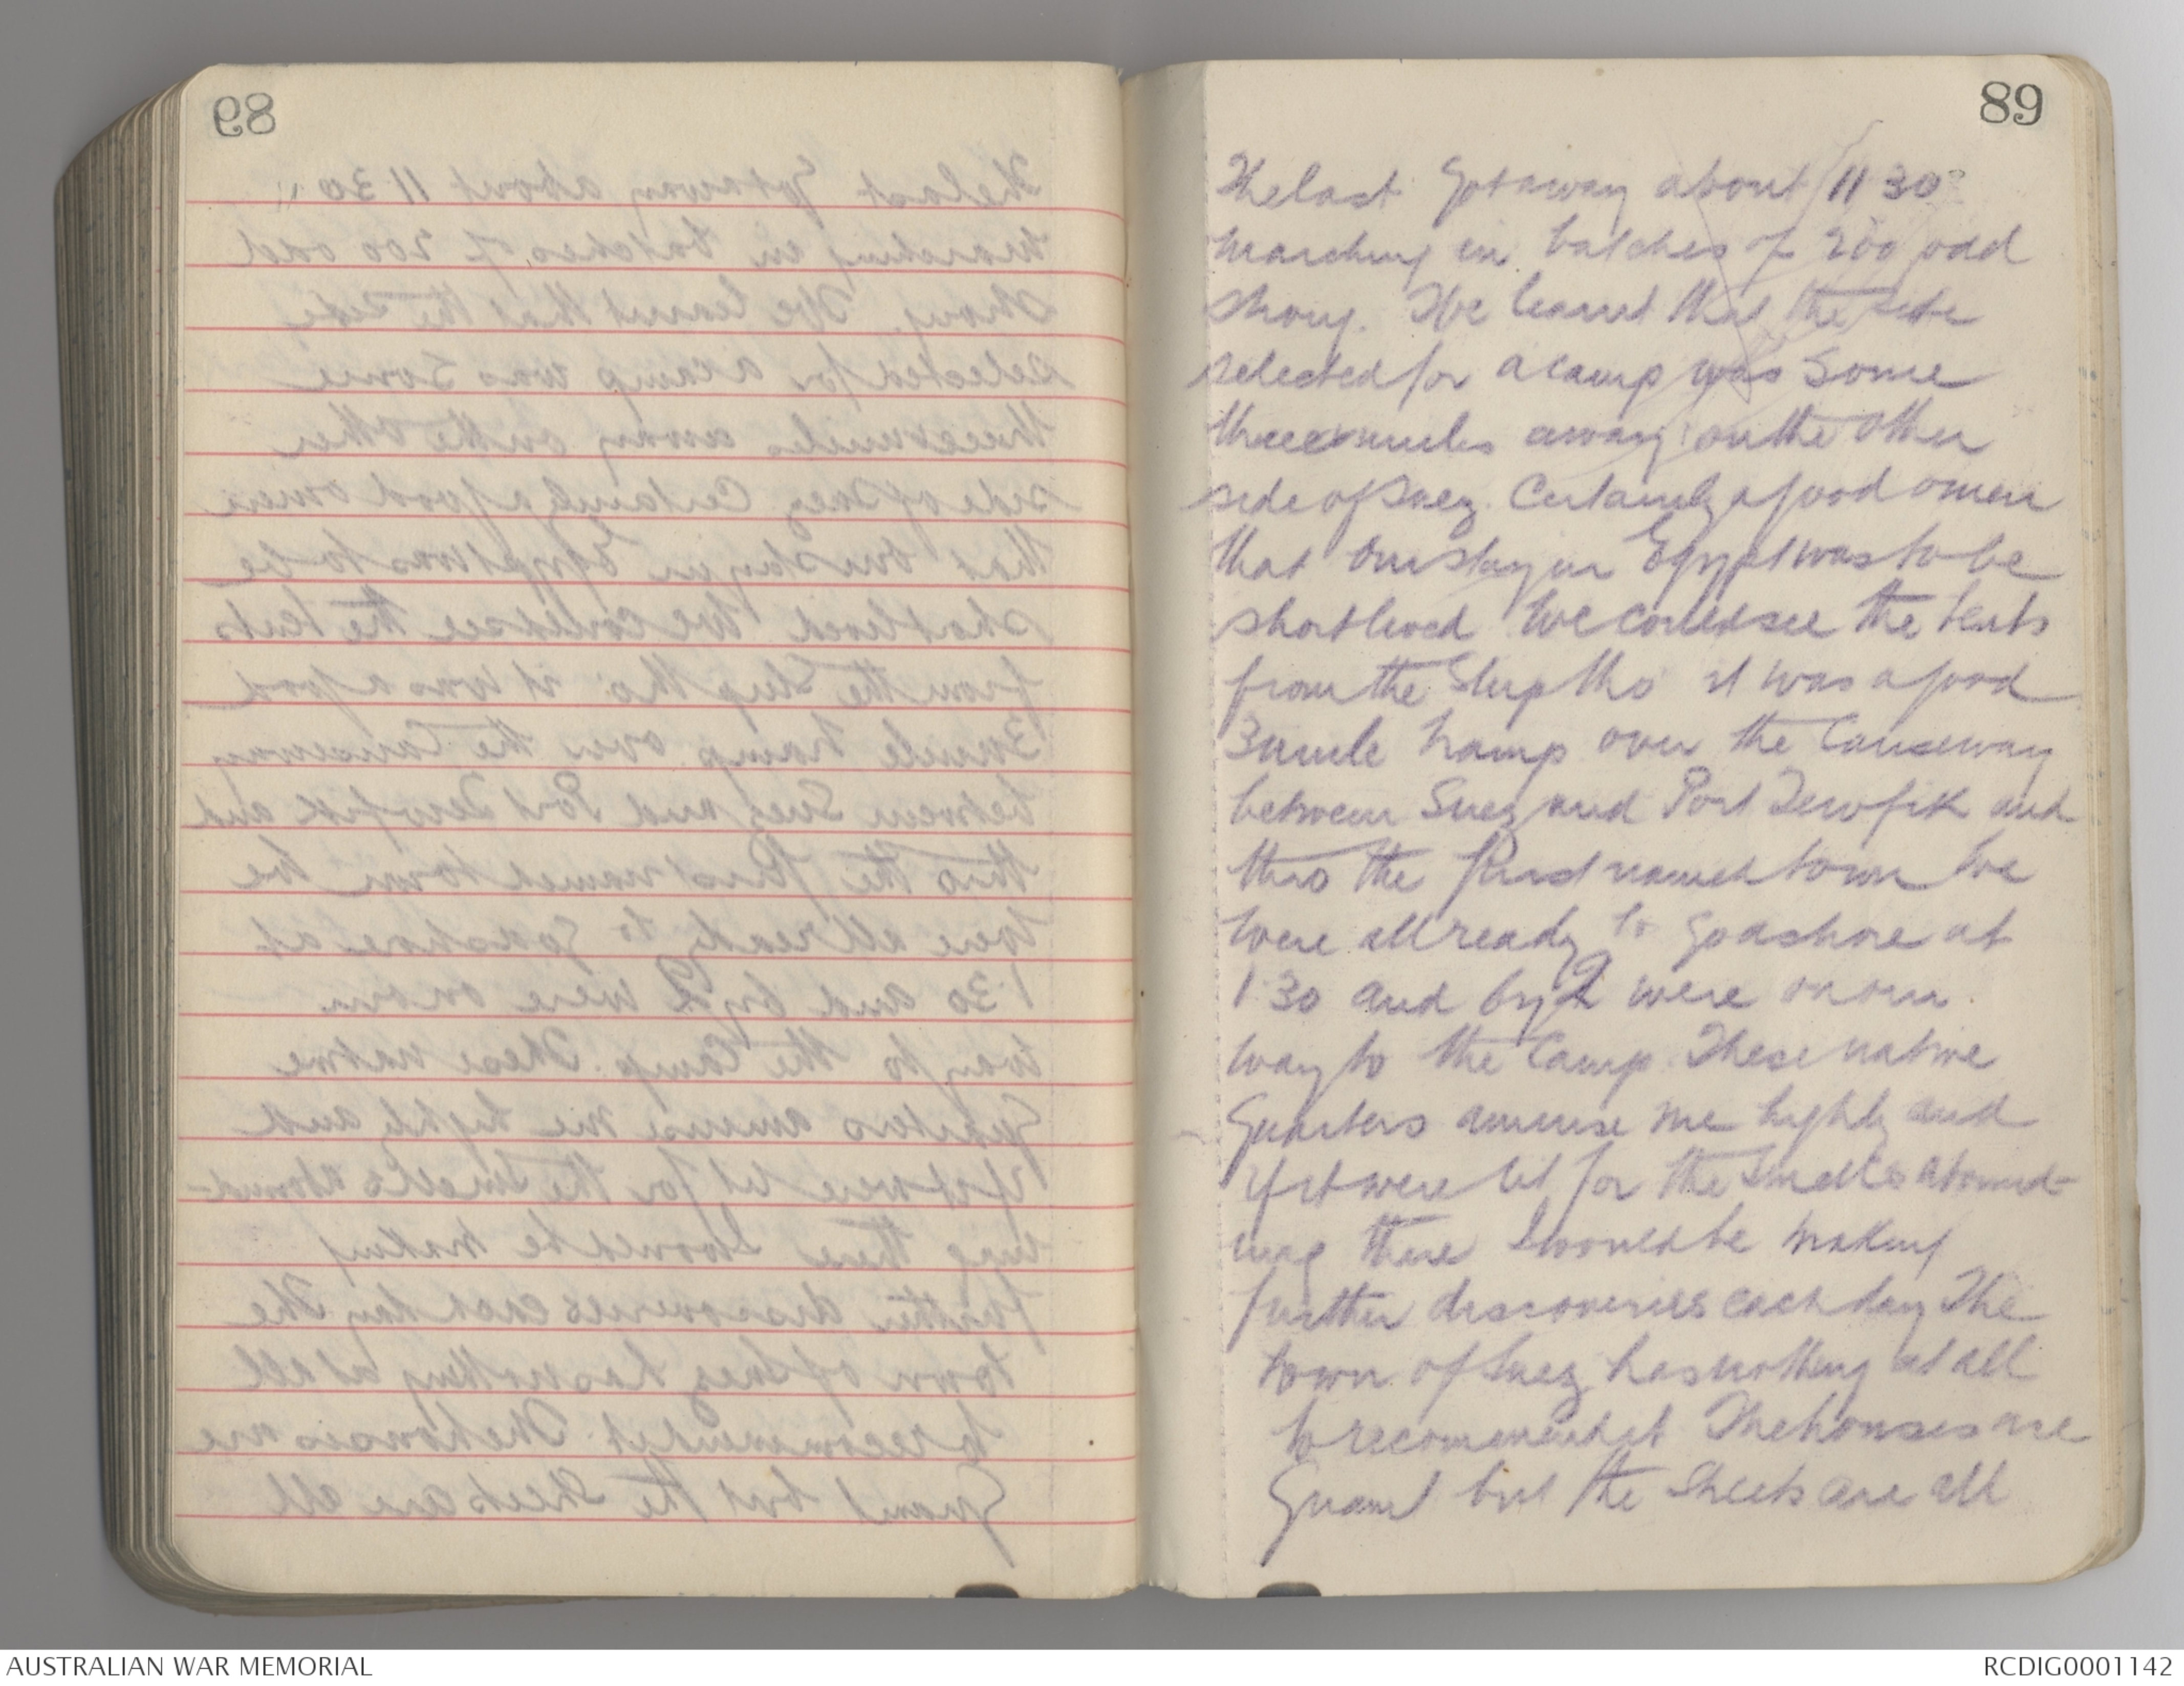 89
The last Got away about 11 30
marching in batches of 200 odd
strong. We learnt that the site
selected for a camp was some
three miles away on the other
side of Suez. Certainly a good omen
that our stay in Egypt was to be
short lived We could see the tents
from the Ship tho' it was a good
3 mile tramp over the Causeway
between Suez and Port Tewfik and
thro the first named town We
were all ready to go ashore at
1.30 and by 2 were on our
way to the Camp. These native
Quarters amuse me highly and
if it were not for the smells abound-
ing there I would be making
further discoveries each day The
town of Suez has nothing at all
to recommend it The houses are
Grand but the Streets are all
AUSTRALIAN WAR MEMORIAL
RCDIG0001142